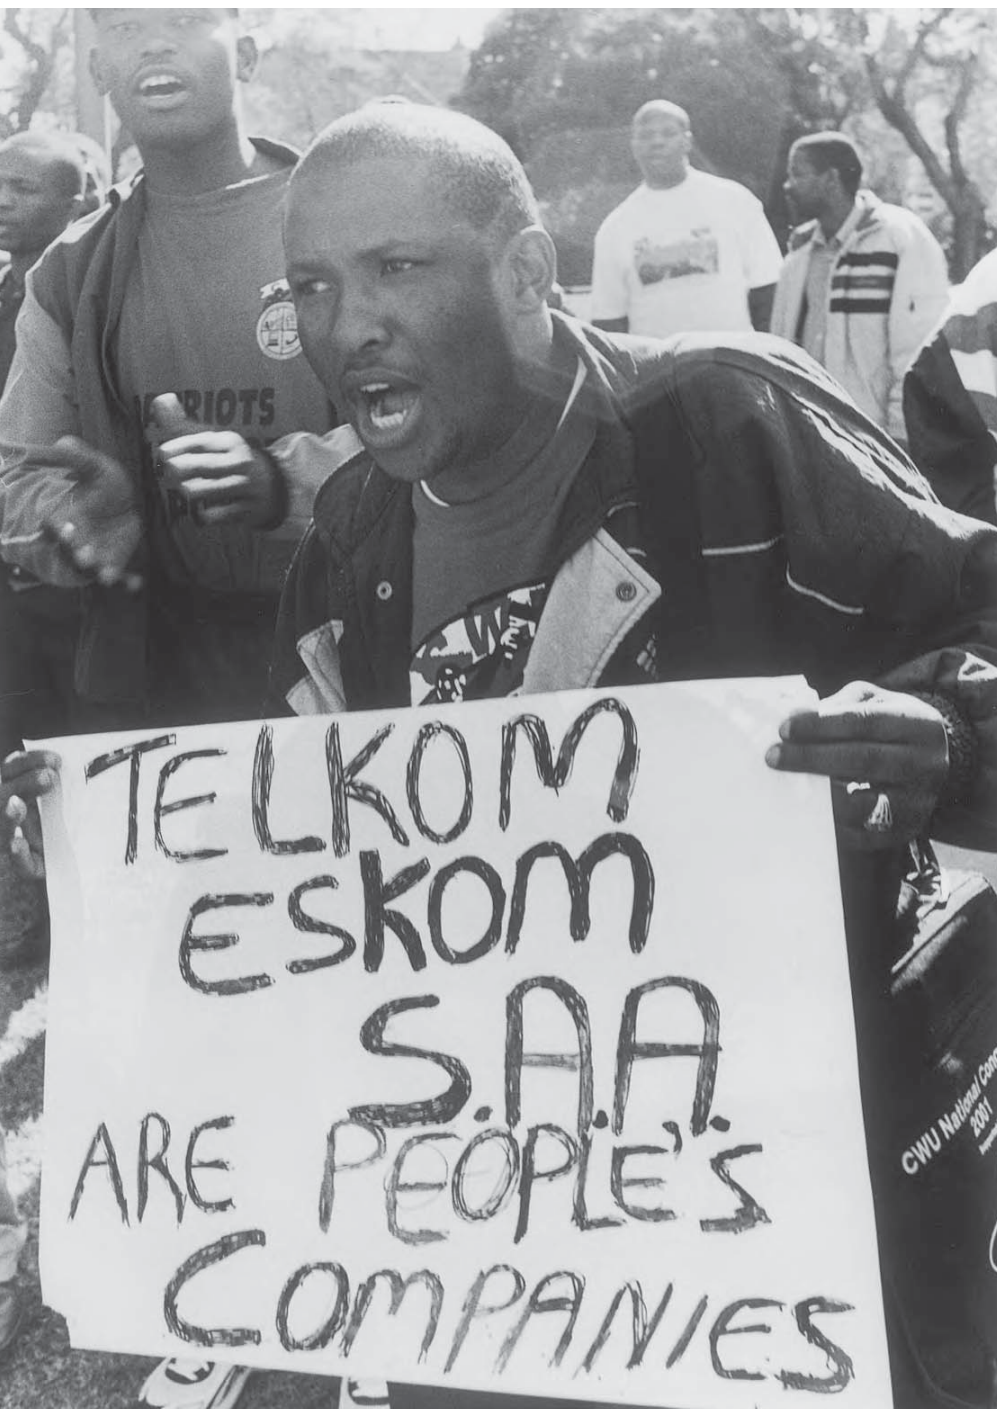 PATRIOTS
TELKOM
ESKOM
S.A.A.
ARE PEOPLE'S
COMPANIES
CWU National
2001